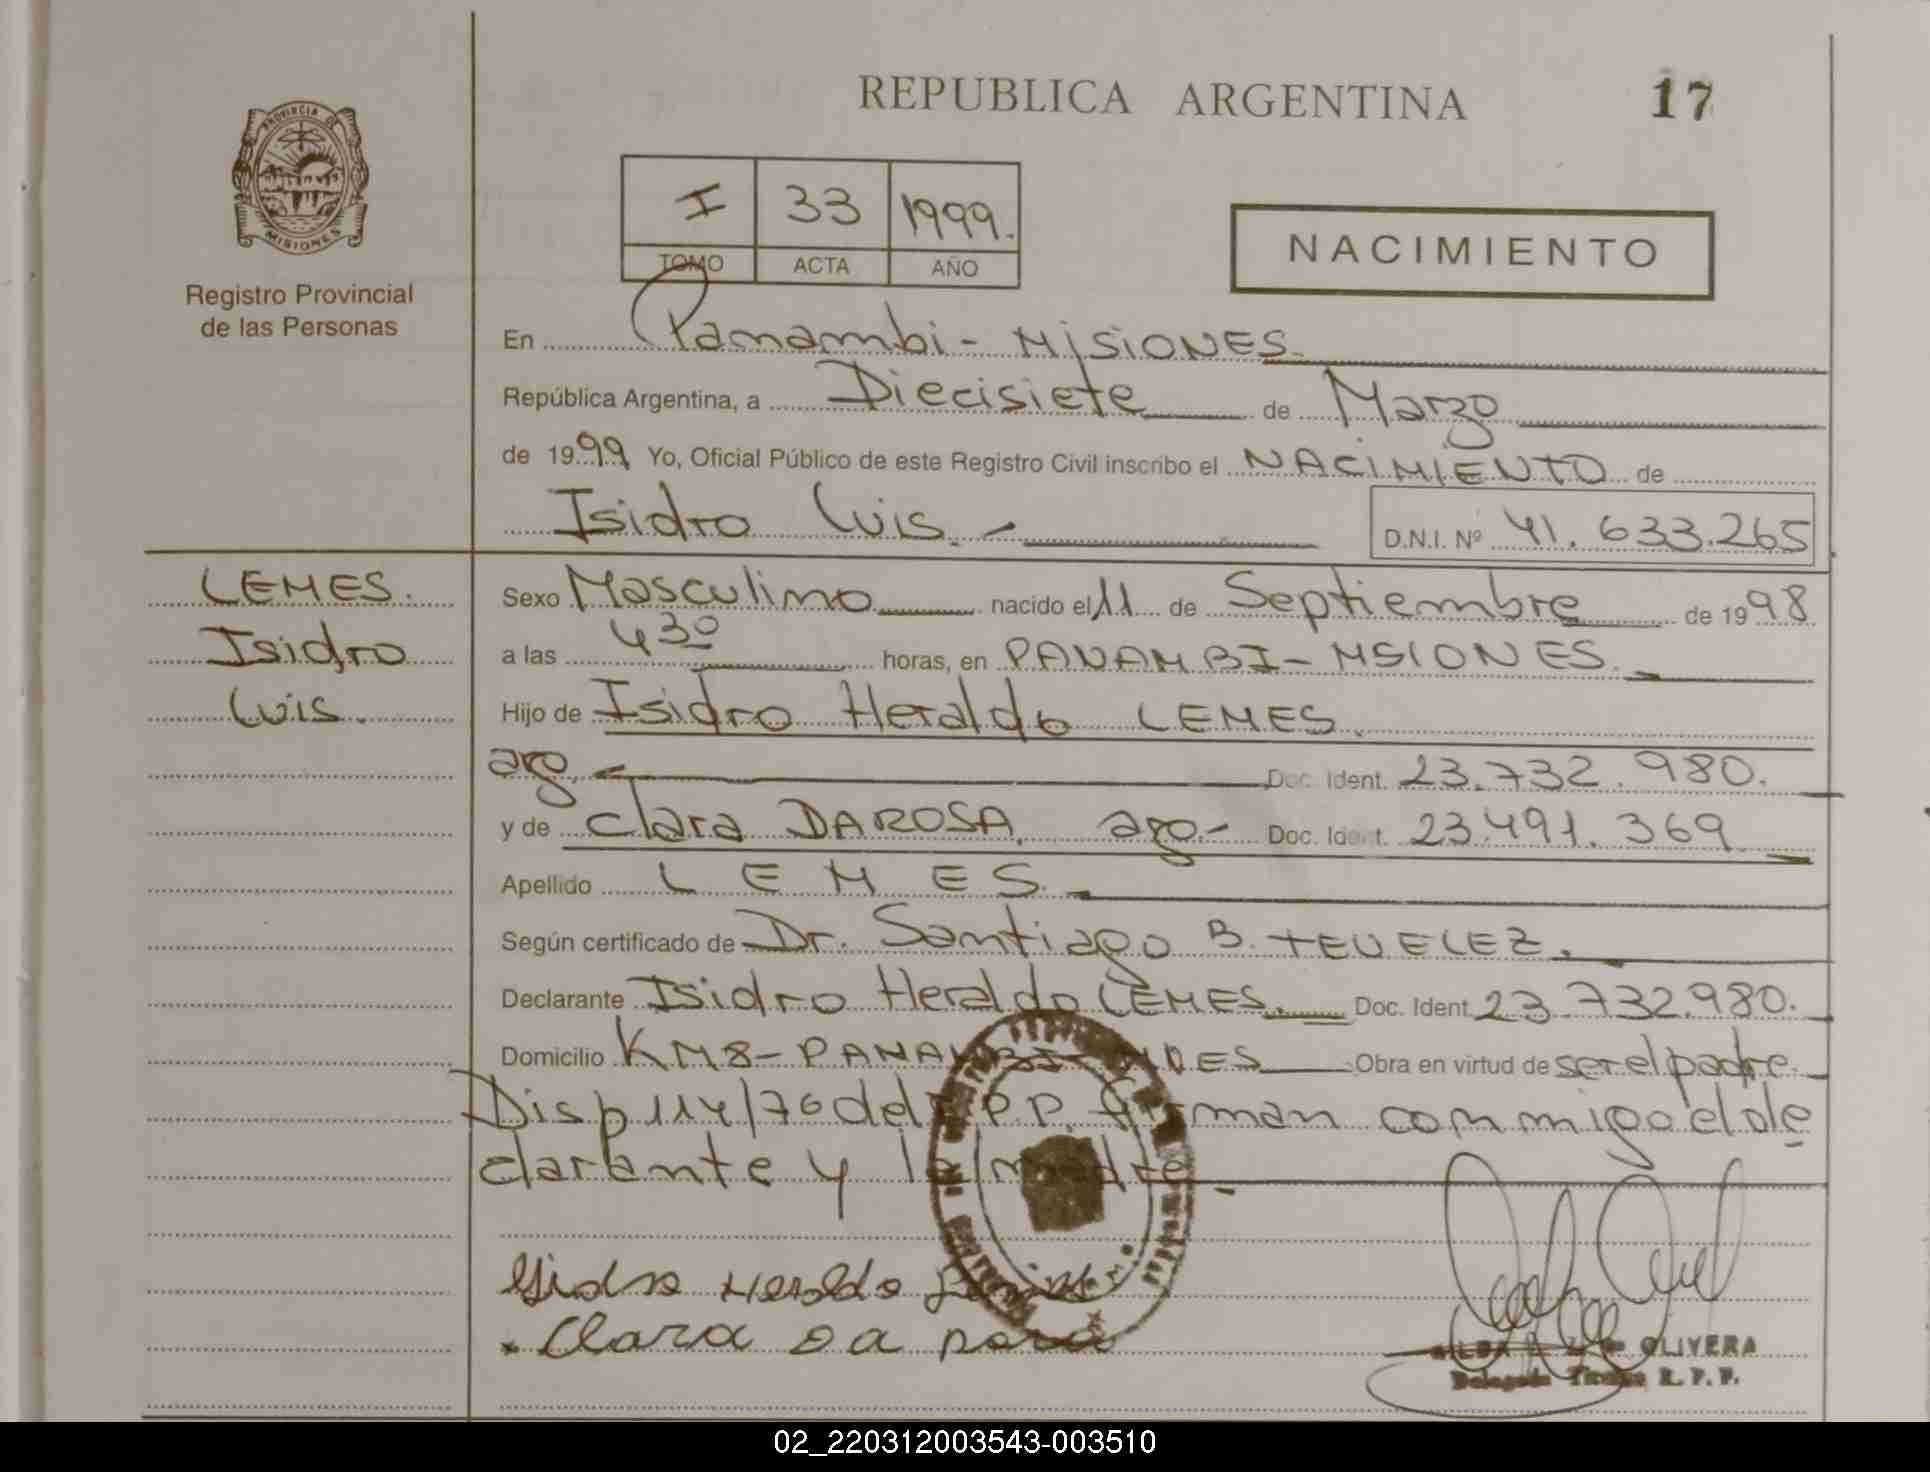 REPUBLICA ARGENTINA
17
PROVINCIA DE
MISIONES
Registro Provincial
de las Personas
I 33 1999.
TOMO ACTA AÑO
NACIMIENTO
En Panambi - MISIONES.
República Argentina, a Diecisiete de Marzo
de 1999 Yo, Oficial Público de este Registro Civil inscribo el NACIMIENTO de
Isidro Luis.-
D.N.I. Nº 41.633.265
LEMES.
Isidro
Luis.
Sexo Masculino nacido el 11 de Septiembre de 1998
a las 4 30 horas, en PANAMBI- MSIONES.
Hijo de Isidro Heraldo LEMES.
arg. Doc. Ident. 23.732.980.
y de Clara DAROSA, arg.- Doc. Ident. 23.491.369
Apellido L E M E S.
Según certificado de Dr. Santiago B. TEVELEZ.
Declarante Isidro Heraldo LEMES. Doc. Ident. 23.732.980.
Domicilio KM8- PANAMBI- Obra en virtud de ser el padre.
Disp 114/76 del P.P. firman conmigo el de
clarante y la madre.
Isidro Heraldo
Clara da
OLIVERA
Delegada Titular R. P. P.
02_220312003543-003510